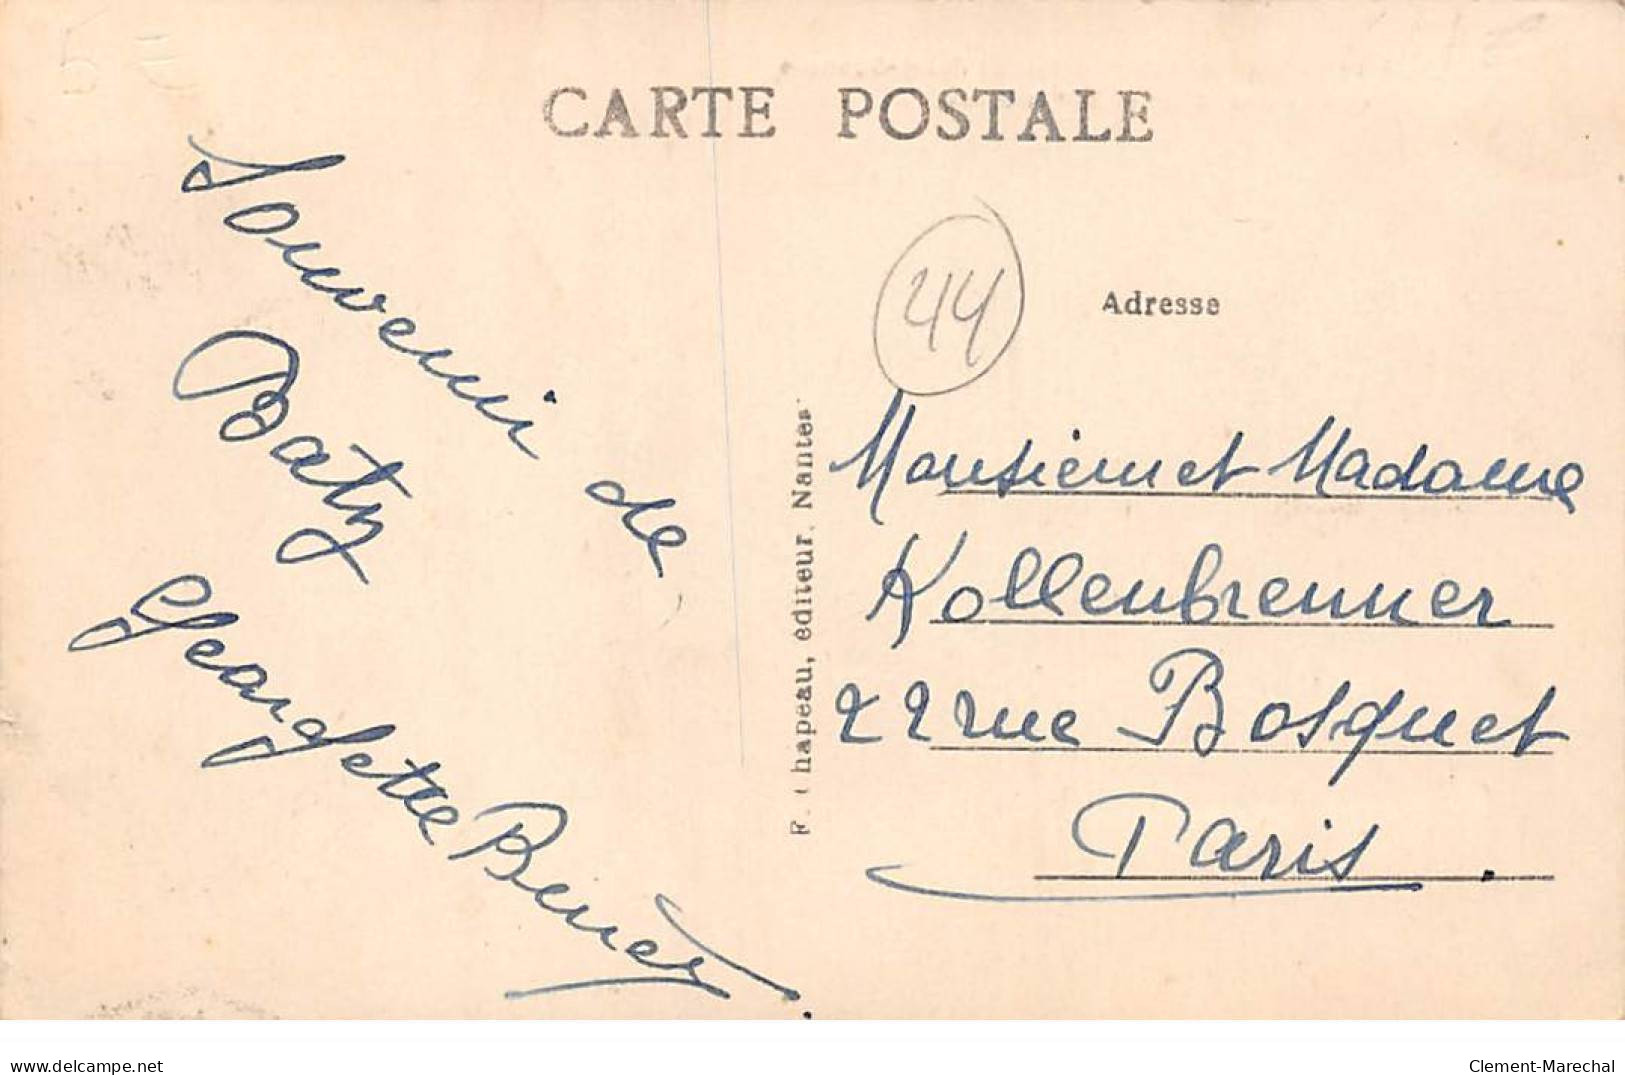 CARTE POSTALE
Souvenir de
Batz
Georgette
44
Adresse
Monsieur et Madame
Kollenbrenner
22 rue Bosquet
Paris.
F. Chapeau, éditeur. Nantes
www.delcampe.net
Clement-Marechal